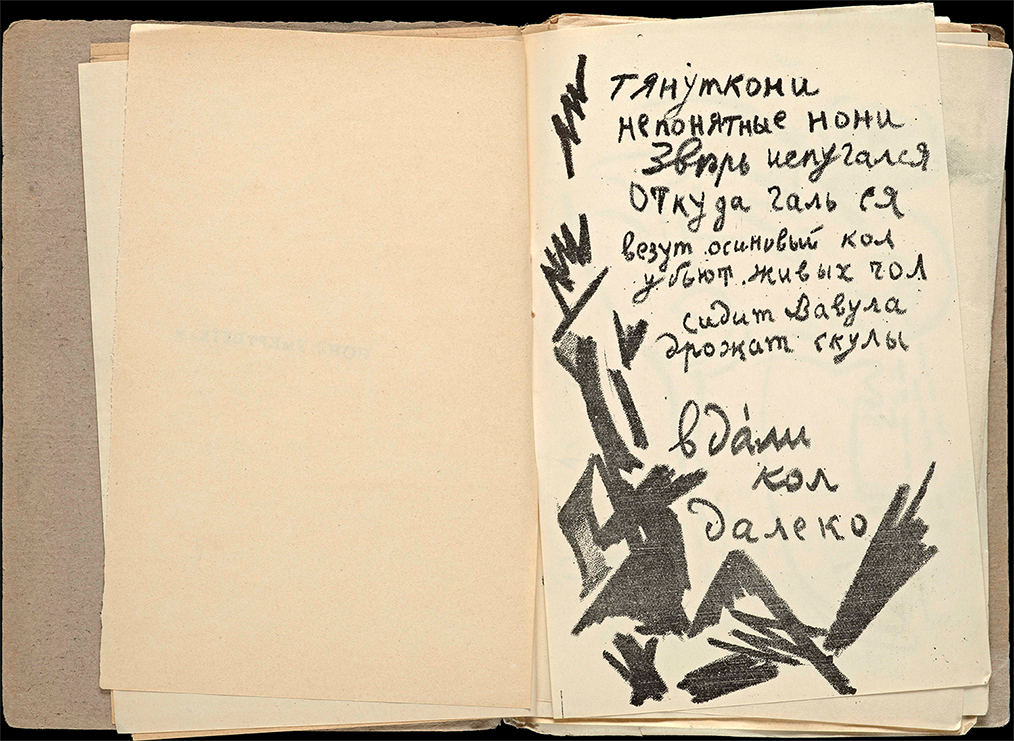 тянуткони
непонятные нони
Звѣрь испугался
Откуда галь ся
везут осиновый кол
убьют живых чол
сидит Вавула
дрожат скулы
вда́ли
кол
далеко